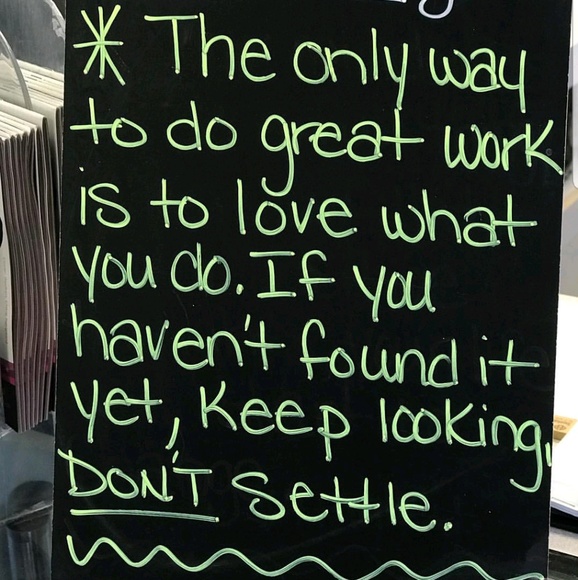 * The only way
to do great work
is to love what
you do. If you
haven't found it
yet, keep looking,
DON'T settle.